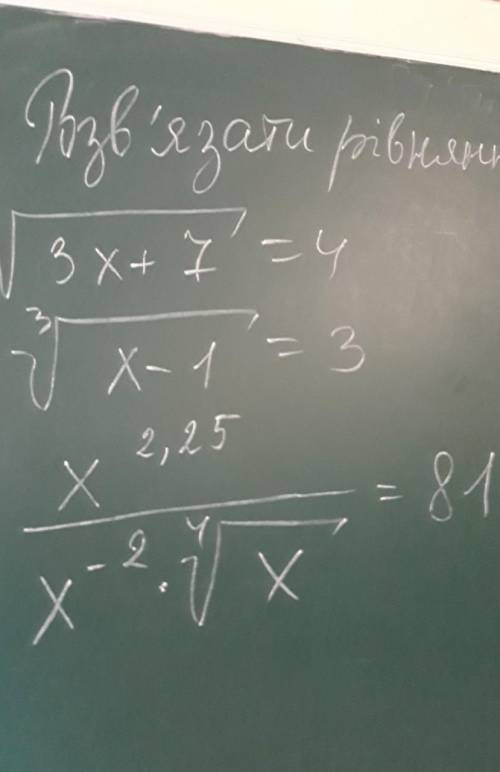 Розв'язати рівнянн
√(3x + 7) = 4
∛(x - 1) = 3
x^2,25 / (x^-2 · ∜x) = 81